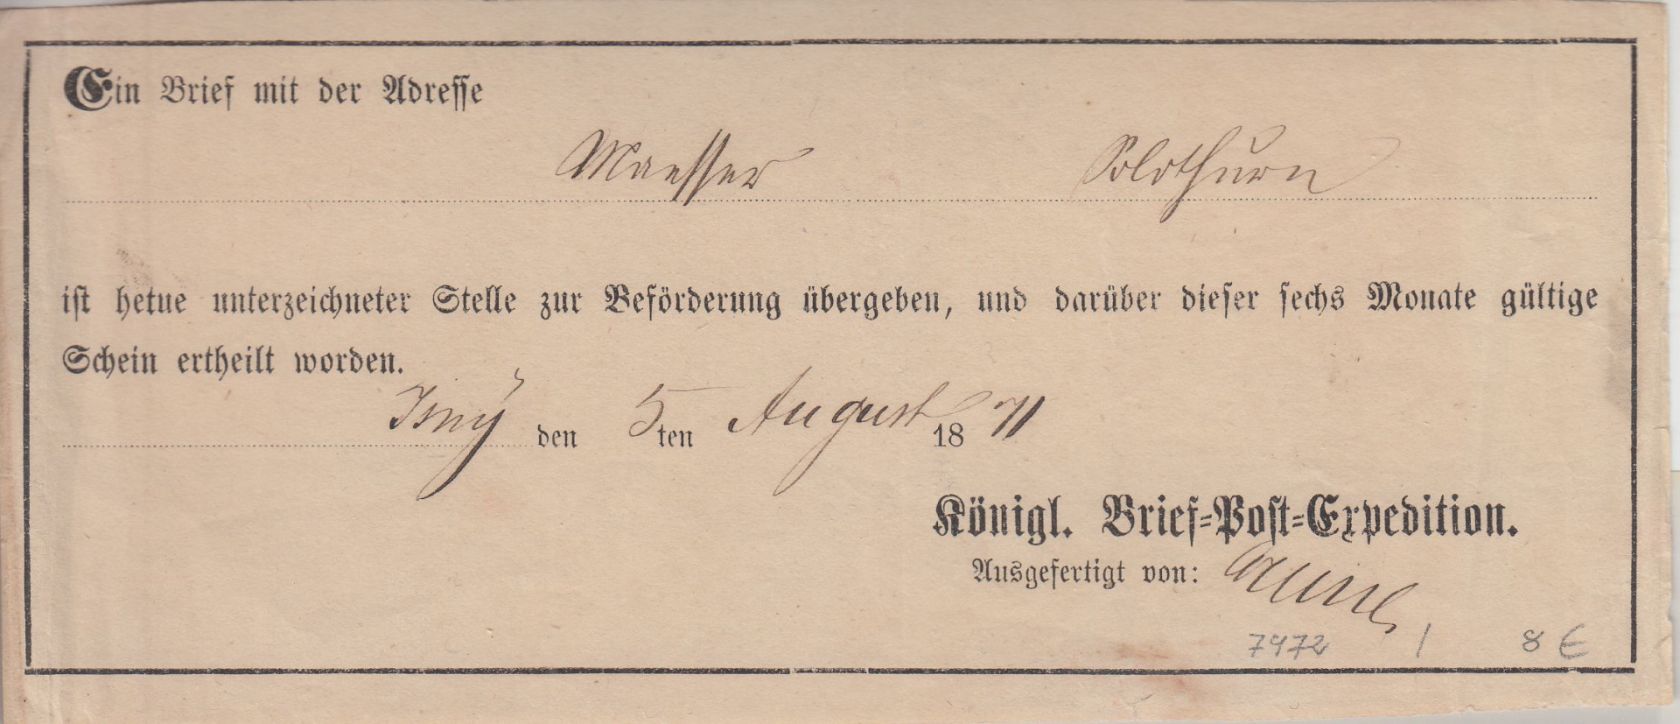 Ein Brief mit der Adresse
Maesser Solothurn
ist hetue unterzeichneter Stelle zur Beförderung übergeben, und darüber dieser sechs Monate gültige
Schein ertheilt worden.
Isny den 5ten August 1871
Königl. Brief-Post-Expedition.
Ausgefertigt von:
7472 / 8 €